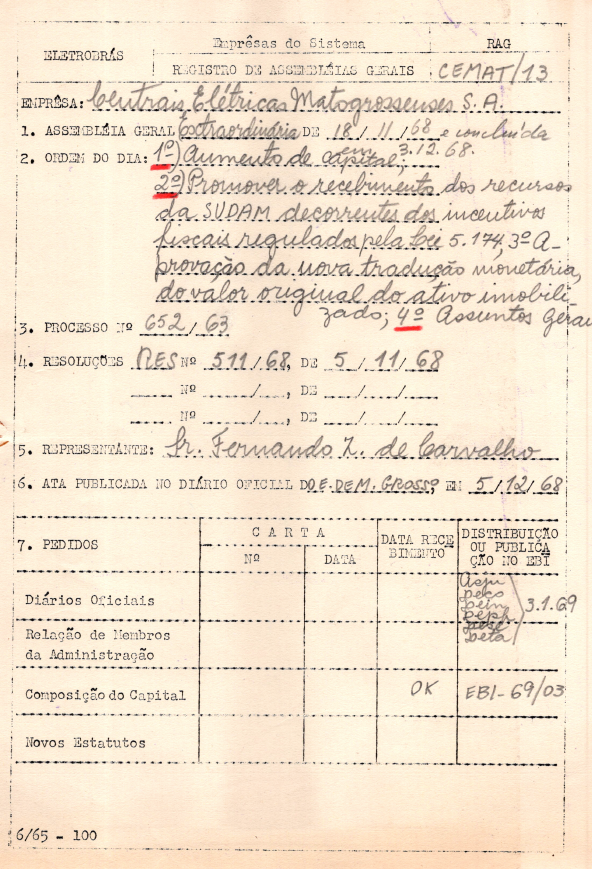 ELETROBRÁS
Emprêsas do Sistema
RAG
REGISTRO DE ASSEMBLÉIAS GERAIS
CEMAT/13
EMPRÊSA: Centrais Elétricas Matogrossenses S.A.
1. ASSEMBLÉIA GERAL Extraordinária DE 18/11/68 e concluída
em 3.12.68.
2. ORDEM DO DIA: 1º) Aumento de capital;
2º) Promover o recebimento dos recursos
da SUDAM decorrentes dos incentivos
fiscais regulados pela Lei 5.174, 3º A-
provação da nova tradução monetária,
do valor original do ativo imobili-
zado; 4º Assuntos Gerai
3. PROCESSO Nº 652/63
4. RESOLUÇÕES RES Nº 511/68, DE 5/11/68
Nº / , DE / /
Nº / , DE / /
5. REPRESENTANTE: Sr. Fernando Z. de Carvalho
6. ATA PUBLICADA NO DIÁRIO OFICIAL DO E. DE M. GROSSO, EM 5/12/68
7. PEDIDOS
CARTA
Nº
DATA
DATA RECE
BIMENTO
DISTRIBUIÇÃO
OU PUBLICA
ÇÃO NO EBI
Diários Oficiais
Asju
peco
peim
peph
pese
beta
3.1.69
Relação de Membros
da Administração
Composição do Capital
OK
EBI-69/03
Novos Estatutos
6/65 - 100